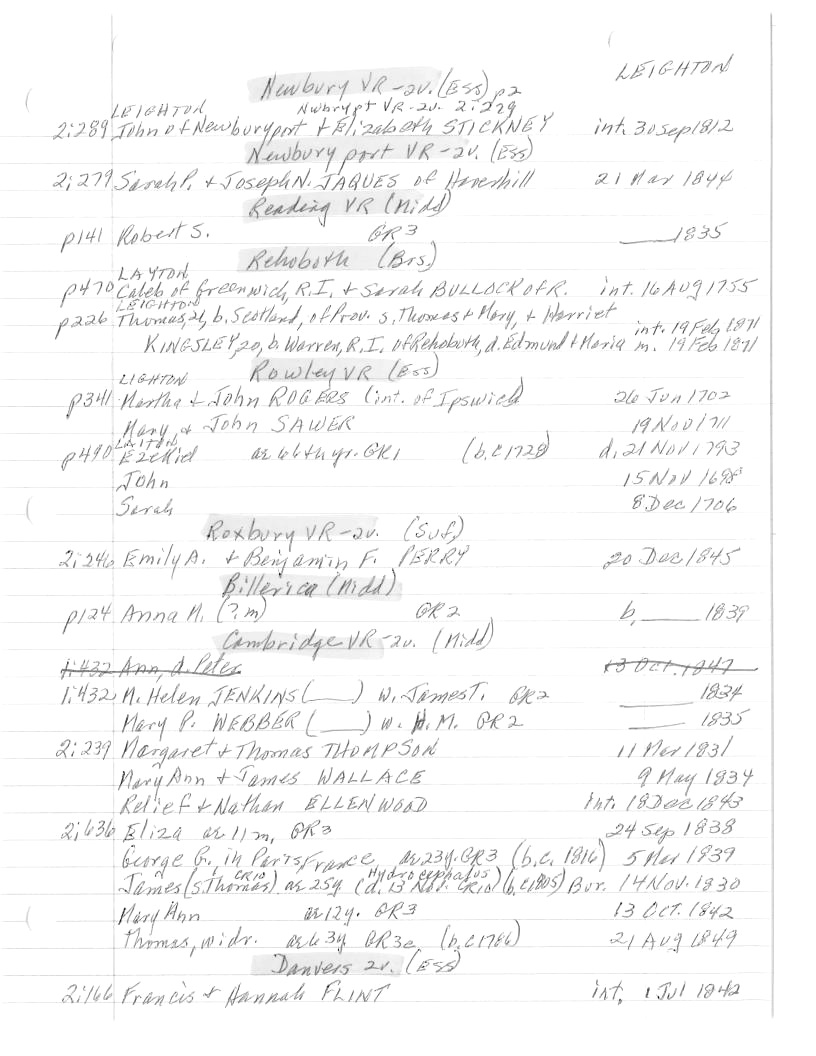 LEIGHTON
Newbury VR-2v. (Ess) p2
LEIGHTON Nwbrypt VR-2v. 2:279
2:289 John of Newburyport + Elizabeth STICKNEY int. 30 Sep 1812
Newbury port VR-2v. (Ess)
2:279 Sarah P. + Joseph N. JAQUES of Haverhill 21 Mar 1844
Reading VR (Midd)
p141 Robert S. GR3 ____1835
Rehoboth (Brs)
LAYTON
p470 Caleb of Greenwich, R.I. + Sarah BULLOCK of R. int. 16 Aug 1755
LEIGHTON
p226 Thomas, 21, b. Scotland, of Prov. s. Thomas + Mary, + Harriet int. 19 Feb 1871
KINGSLEY, 20, b. Warren, R.I. of Rehoboth, d. Edmund + Maria m. 19 Feb 1871
Rowley VR (Ess)
LIGHTON
p341 Martha + John ROGERS (int. of Ipswich) 26 Jun 1702
Mary + John SAWER 19 Nov 1711
LAITON
p490 Ezekiel ae 66th yr. GR1 (b.c 1728) d. 21 Nov 1793
John 15 Nov 1698
Sarah 8 Dec 1706
Roxbury VR-2v. (Suf)
2:246 Emily A. + Benjamin F. PERRY 20 Dec 1845
Billerica (Midd)
p124 Anna M. (?m) GR2 b. ____ 1839
Cambridge VR-2v. (Midd)
1:432 Ann, d. Peter 13 Oct. 1847
1:432 M. Helen JENKINS (____) w. James T. GR2 ____ 1834
Mary P. WEBBER (____) w. H.M. GR2 ____ 1835
2:239 Margaret + Thomas THOMPSON 11 Mar 1831
Mary Ann + James WALLACE 9 May 1834
Relief + Nathan ELLENWOOD int. 18 Dec 1843
2:636 Eliza ae 11m, GR3 24 Sep 1838
George G. in Paris, France, ae 23y. GR3 (b.c. 1816) 5 Mar 1839
CR10 Hydrocephalus
James (s. Thomas) ae 25y (d. 13 Nov. CR10) (b.c 1805) Bur. 14 Nov. 1830
Mary Ann ae 12y. GR3 13 Oct. 1842
Thomas, widr. ae 63y GR3e (b.c 1786) 21 Aug 1849
Danvers 2v. (Ess)
2:166 Francis + Hannah FLINT int. 1 Jul 1842